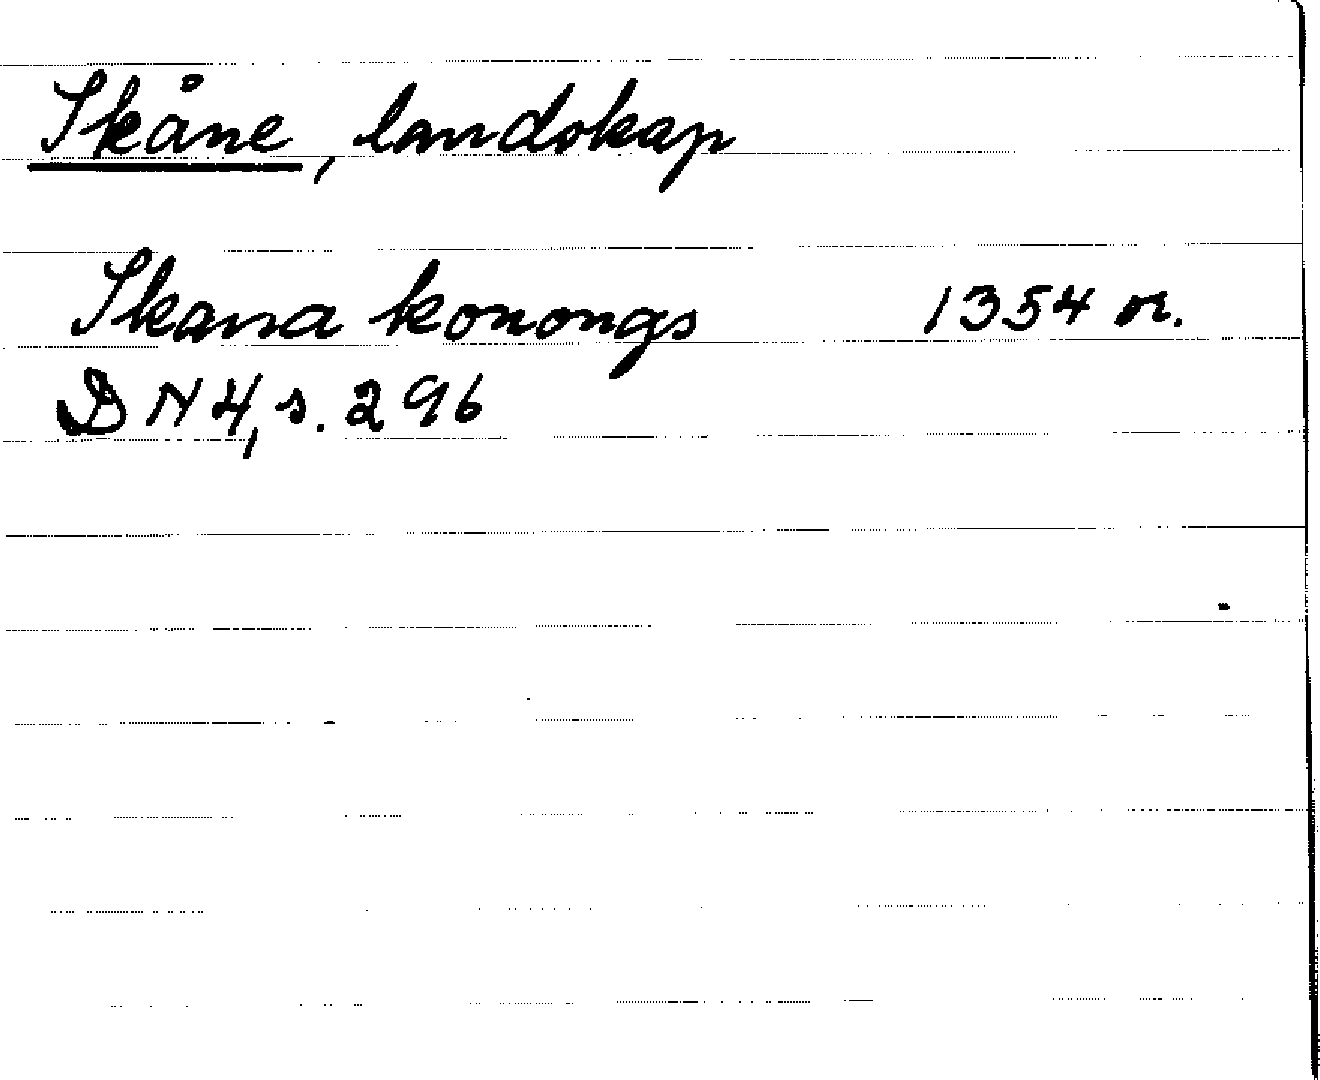 Skåne, landskap
Skana konongs 1354 or.
DN 4, s. 296